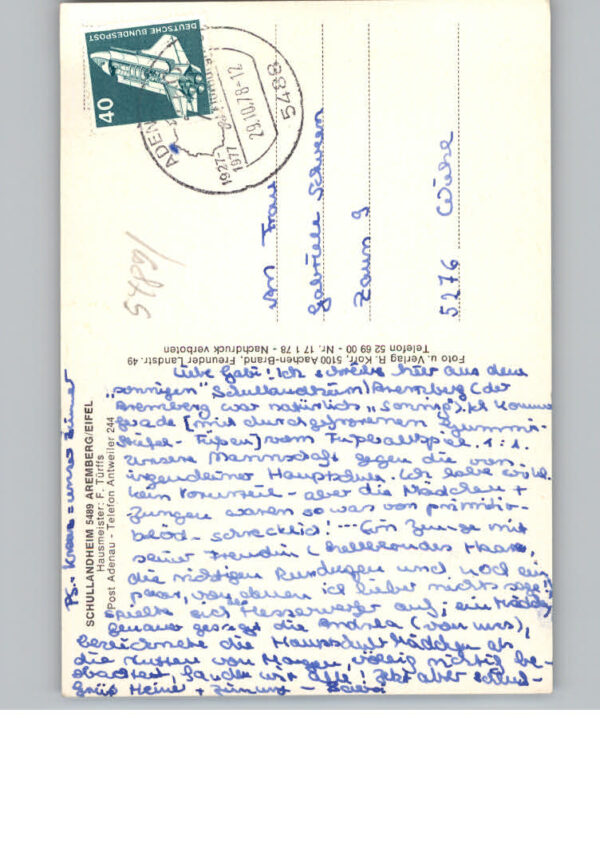 DEUTSCHE BUNDESPOST
40
5488
29.10.78-12
1927-
1977
An Frau
Gabriele
Zaun 9
5276 Wiehl
Foto u. Verlag R. Korr, 5100 Aachen-Brand, Freunder Landstr. 49
Telefon 52 69 00 - Nr. 17 1 78 - Nachdruck verboten
SCHULLANDHEIM 5489 AREMBERG/EIFEL
Hausmeister: F. Türffs
Post Adenau - Telefon Antweiler 244
PS.: Kreuz = unser Zimmer
Liebe Gabi! Ich schreibe hier aus dem
"sonnigen" Schullandheim/Aremberg (der
Aremberg war natürlich "sonnig"). Ich komme
gerade [mit durchgefrorenen Gummi-
stiefel-Füßen] vom Fußballspiel. 1:1.
unsere Mannschaft gegen die von
irgendeiner Hauptschule. Ich habe
kein Vorurteil - aber die Mädchen +
Jungen waren so was von primitiv-
blöd - schrecklich! --- Ein Junge mit
seiner Freundin (hellblondes Haar,
die richtigen Rundungen und noch ein
paar, von denen ich lieber nichts sage)
spielte sich Messerwerfer auf; ein Mädch,
genauer gesagt die Andrea (von uns),
bezeichnete die Hauptschul Mädchen als
die Nutten von Morgen, völlig richtig be-
obachtet, fanden wir alle! Jetzt aber
Grüß Heiner +